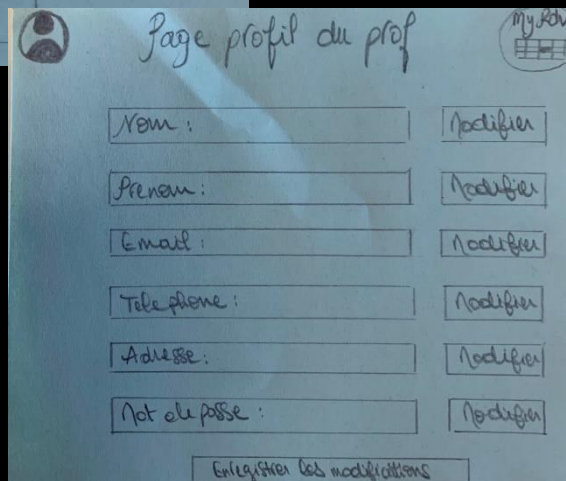 Page profil du prof
My Rdv
Nom :
Modifier
Prenom :
Modifier
Email :
Modifier
Telephone :
Modifier
Adresse :
Modifier
Mot de passe :
Modifier
Enregistrer les modifications